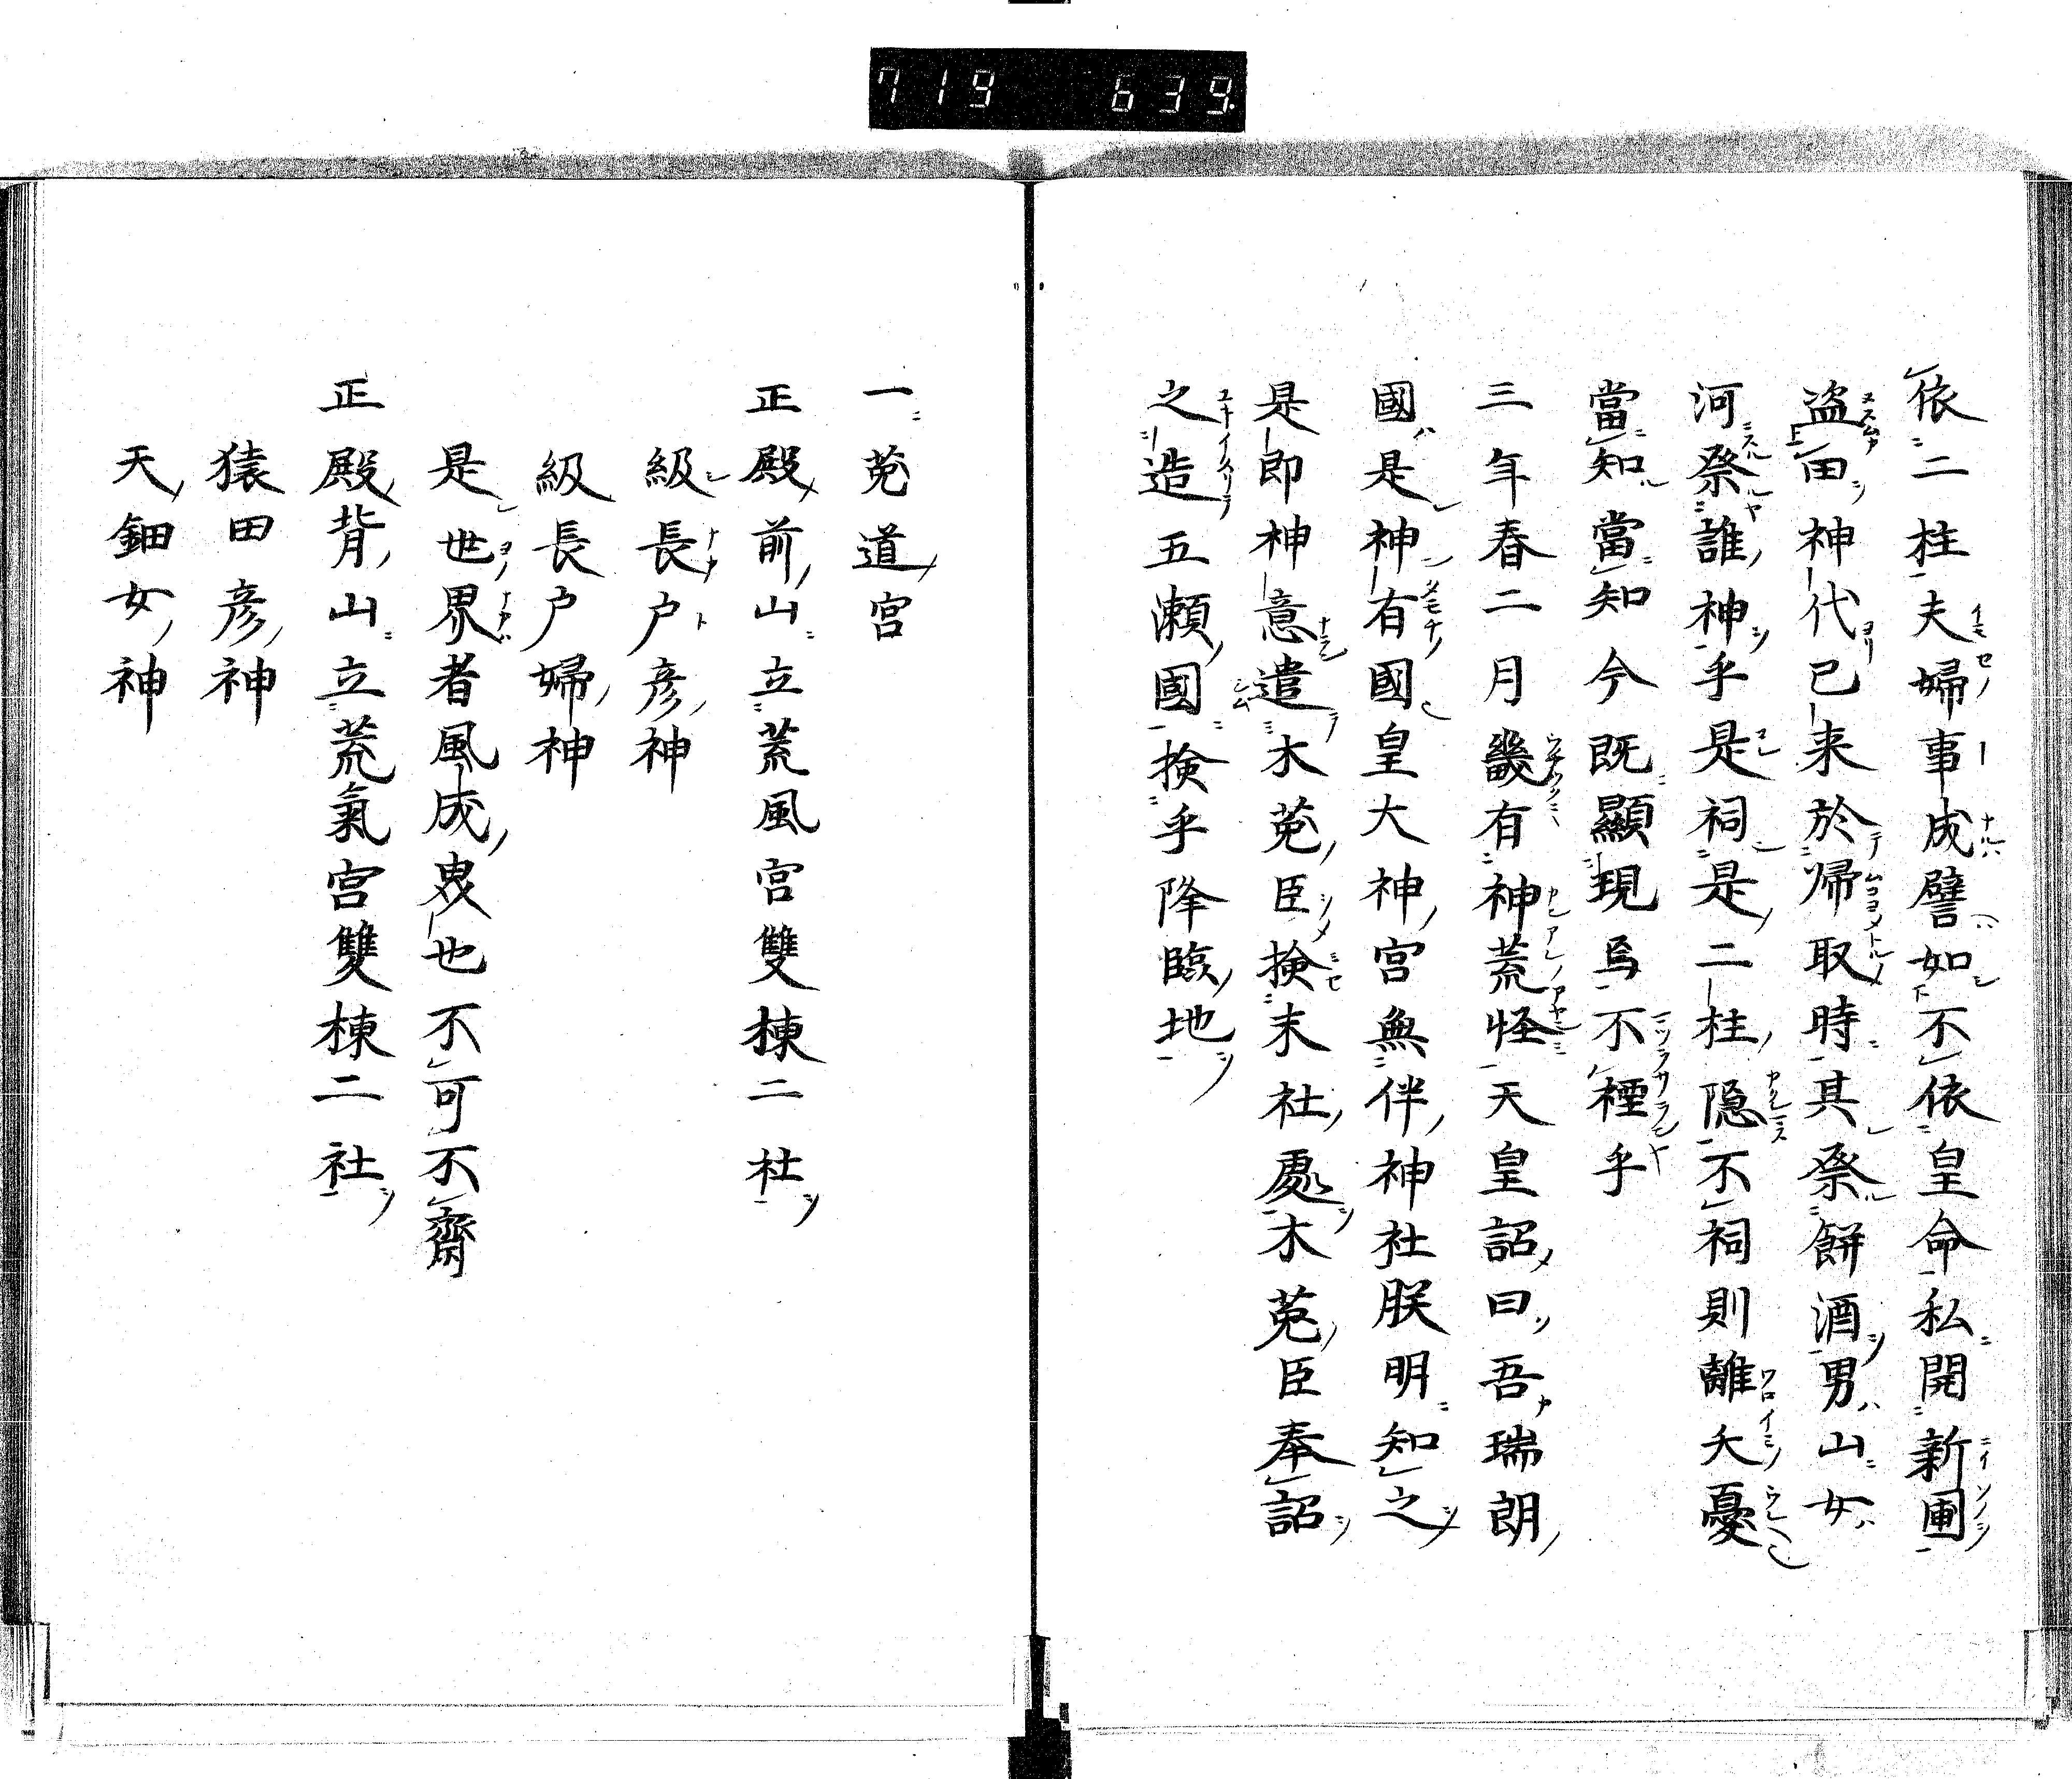 719 639
依二柱夫婦事成譬如不依皇命私開新圃
盗田神代已来於帰取時其祭餅酒男山女
河祭誰神乎是祠是二柱隠不祠則離大憂
當知當知今既顯現焉不種乎
三年春二月畿有神荒怪天皇詔曰吾瑞朗
國是神有國皇大神宮無伴神社朕明知之
是即神意遣木菟臣撿末社處木菟臣奉詔
之造五瀬國撿乎降臨地
一菟道宮
正殿前山立荒風宮雙棟二社
級長戸彦神
級長戸婦神
是世界者風成曳也不可不齋
正殿背山立荒氣宮雙棟二社
猿田彦神
天鈿女神